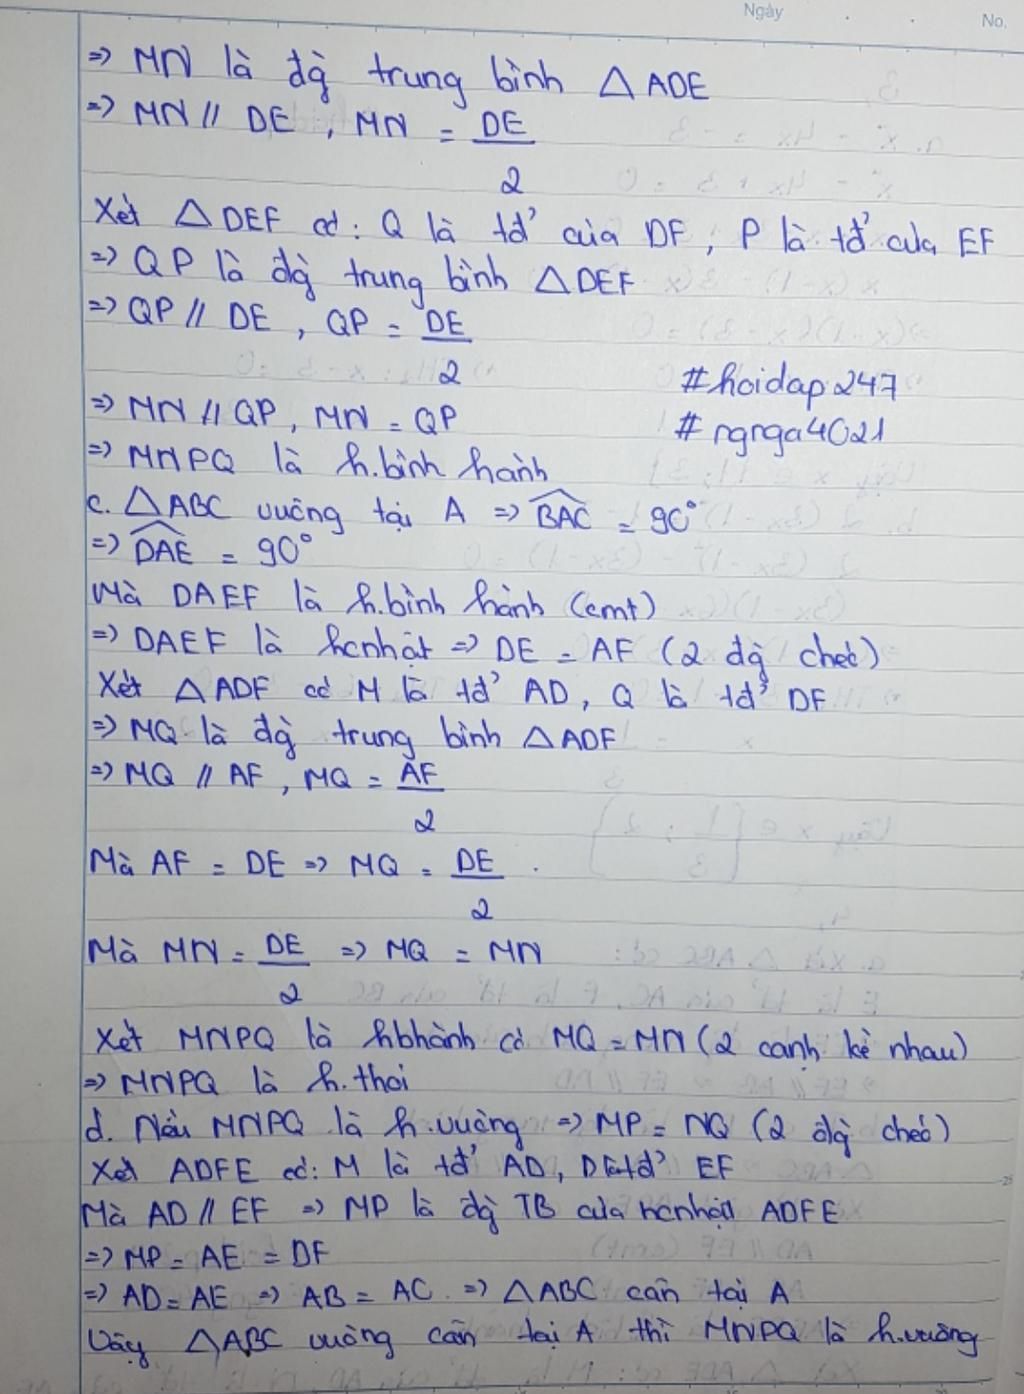 Ngày
No.
=> MN là đg trung bình △ADE
=> MN // DE, MN = DE/2
Xét △DEF có: Q là tđ' của DF, P là tđ' của EF
=> QP là đg trung bình △DEF
=> QP // DE, QP = DE/2
#hoidap247
=> MN // QP, MN = QP
#ngnga4021
=> MNPQ là h.bình hành
c. △ABC vuông tại A => BAC = 90°
=> DAE = 90°
Mà DAEF là h.bình hành (cmt)
=> DAEF là hcnhật => DE = AF (2 đg chéo)
Xét △ADF có M là tđ' AD, Q là tđ' DF
=> MQ là đg trung bình △ADF
=> MQ // AF, MQ = AF/2
Mà AF = DE => MQ = DE/2.
Mà MN = DE/2 => MQ = MN
Xét MNPQ là hbhành có MQ = MN (2 cạnh kề nhau)
=> MNPQ là h.thoi
d. Nếu MNPQ là h.vuông => MP = NQ (2 đg chéo)
Xét ADFE có: M là tđ' AD, tđ' EF
Mà AD // EF => MP là đg TB của hcnhật ADFE
=> MP = AE = DF
=> AD = AE => AB = AC => △ABC cân tại A
Vậy △ABC vuông cân tại A thì MNPQ là h.vuông